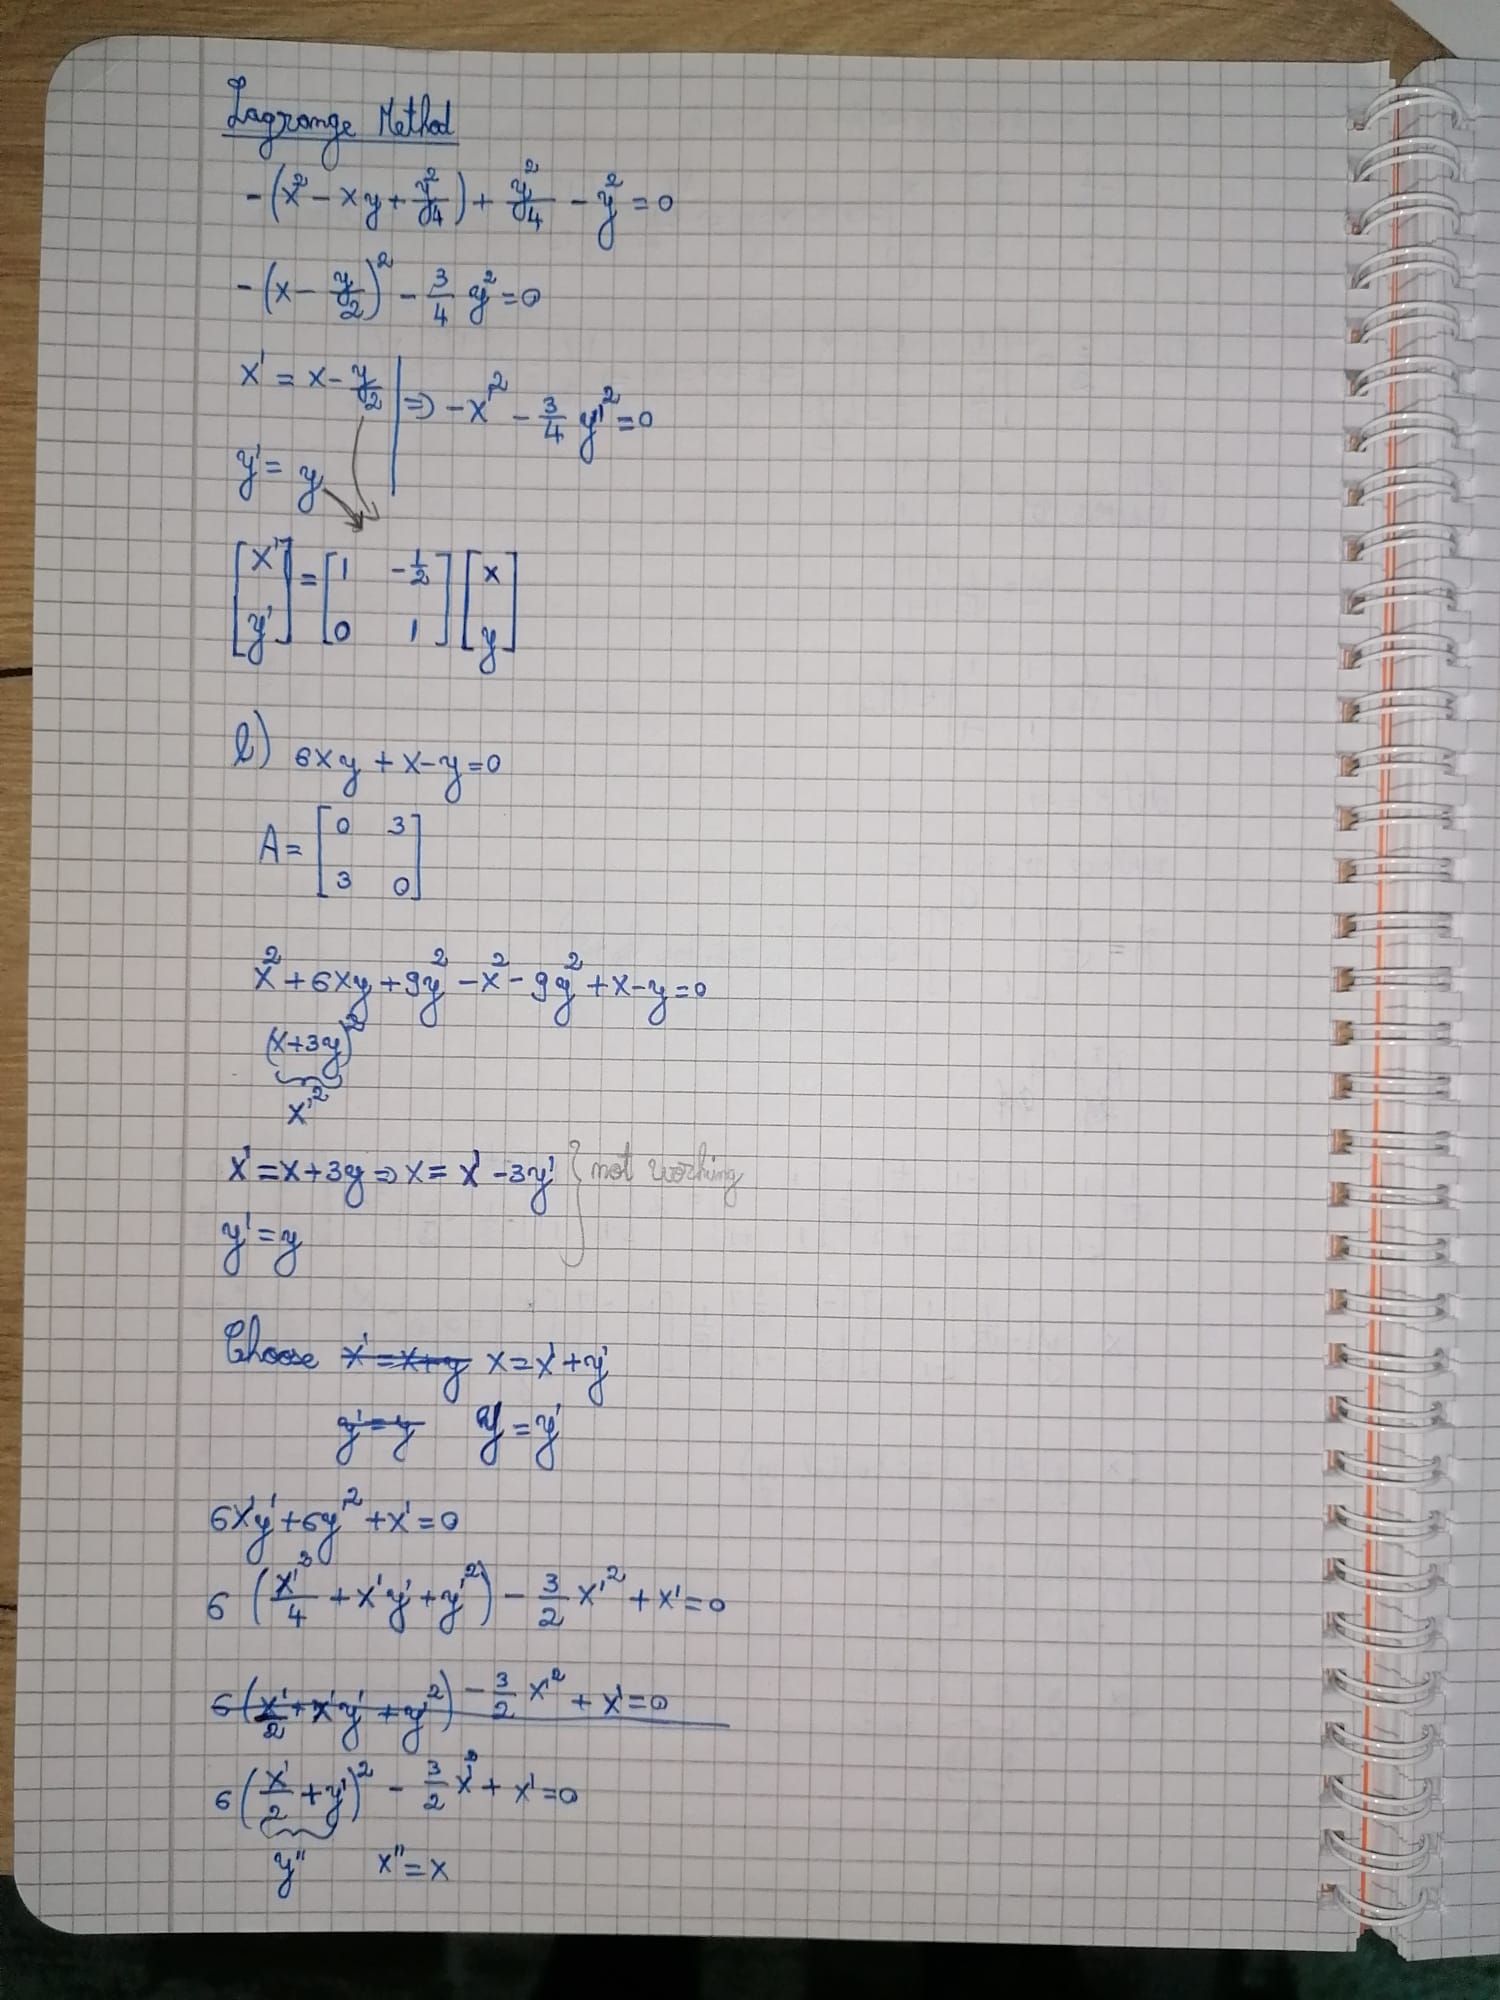 Lagrange Method
-(x² - xy + y²/4) + y²/4 - y² = 0
-(x - y/2)² - 3/4 y² = 0
x' = x - y/2 | ⇒ -x'² - 3/4 y'² = 0
y' = y
[x' y'] = [1 -1/2 0 1] [x y]
b) 6xy + x - y = 0
A = [0 3 3 0]
x² + 6xy + 9y² - x² - 9y² + x - y = 0
(x+3y)²
x'²
x' = x + 3y ⇒ x = x' - 3y' } not working
y' = y
Choose x' = x + y x = x' + y'
y' = y y = y'
6x'y' + 6y'² + x' = 0
6 (x'²/4 + x'y' + y'²) - 3/2 x'² + x' = 0
6 (x'/2 + x'y' + y'²) - 3/2 x'² + x' = 0
6 (x'/2 + y')² - 3/2 x'² + x' = 0
y'' x'' = x